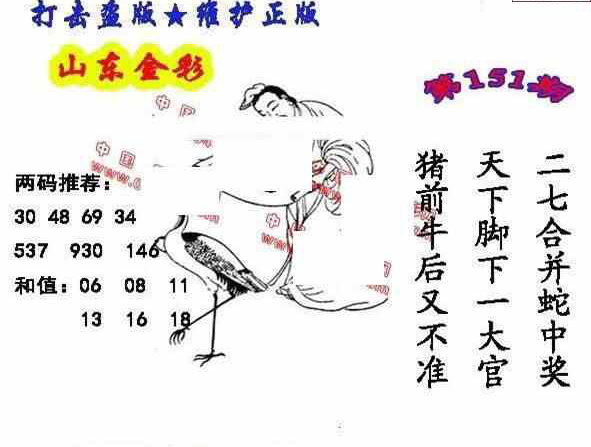 打击盗版★维护正版
山东金彩
第151期
两码推荐：
30 48 69 34
537 930 146
和值：06 08 11
13 16 18
二七合并蛇中奖
天下脚下一大官
猪前牛后又不准
中国
www.
中